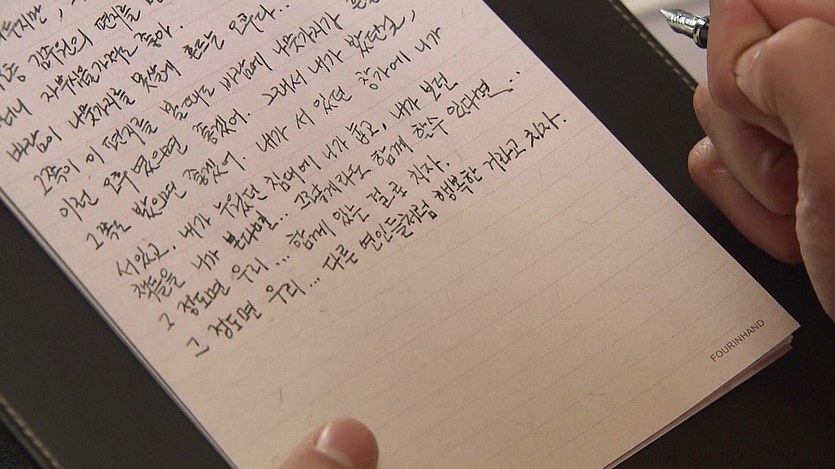 김주원의 편지를
자부심을 가져도 좋아.
바람이 나뭇가지를 못살게 흔드는 오후다..
그쪽이 이 편지를 볼 때도 바람에 나뭇가지가
이런 오후였으면 좋겠어. 그래서 내가 봤던걸,
그쪽도 봤으면 좋겠어. 내가 서 있던 창가에 니가
서있고, 내가 누웠던 침대에 니가 눕고, 내가 보던
책들을 니가 본다면... 그렇게라도 함께 할수 있다면..
그 정도면 우리... 함께 있는 걸로 치자.
그 정도면 우리... 다른 연인들처럼 행복한 거라고 치자.
FOURINHAND